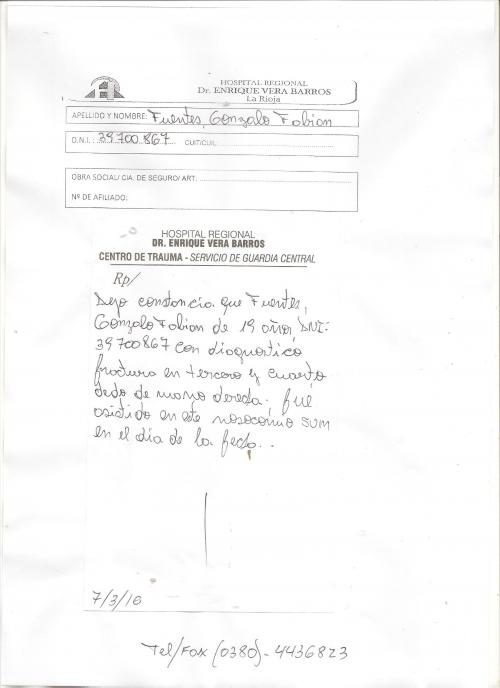 HOSPITAL REGIONAL
Dr. ENRIQUE VERA BARROS
La Rioja
APELLIDO Y NOMBRE: Fuentes, Gonzalo Fabian
D.N.I.: 39700867 CUIT/CUIL:
OBRA SOCIAL/ CIA. DE SEGURO/ ART:
Nº DE AFILIADO:
HOSPITAL REGIONAL
DR. ENRIQUE VERA BARROS
CENTRO DE TRAUMA - SERVICIO DE GUARDIA CENTRAL
Rp/
Dejo constancia que Fuentes,
Gonzalo Fabian de 19 años, DNI:
39700867 con diagnostico
fractura en tercero y cuarto
dedo de mano derecha; fue
asistido en este nosocomio
en el día de la fecha.
7/3/16
Tel/Fax (0380)-4436823